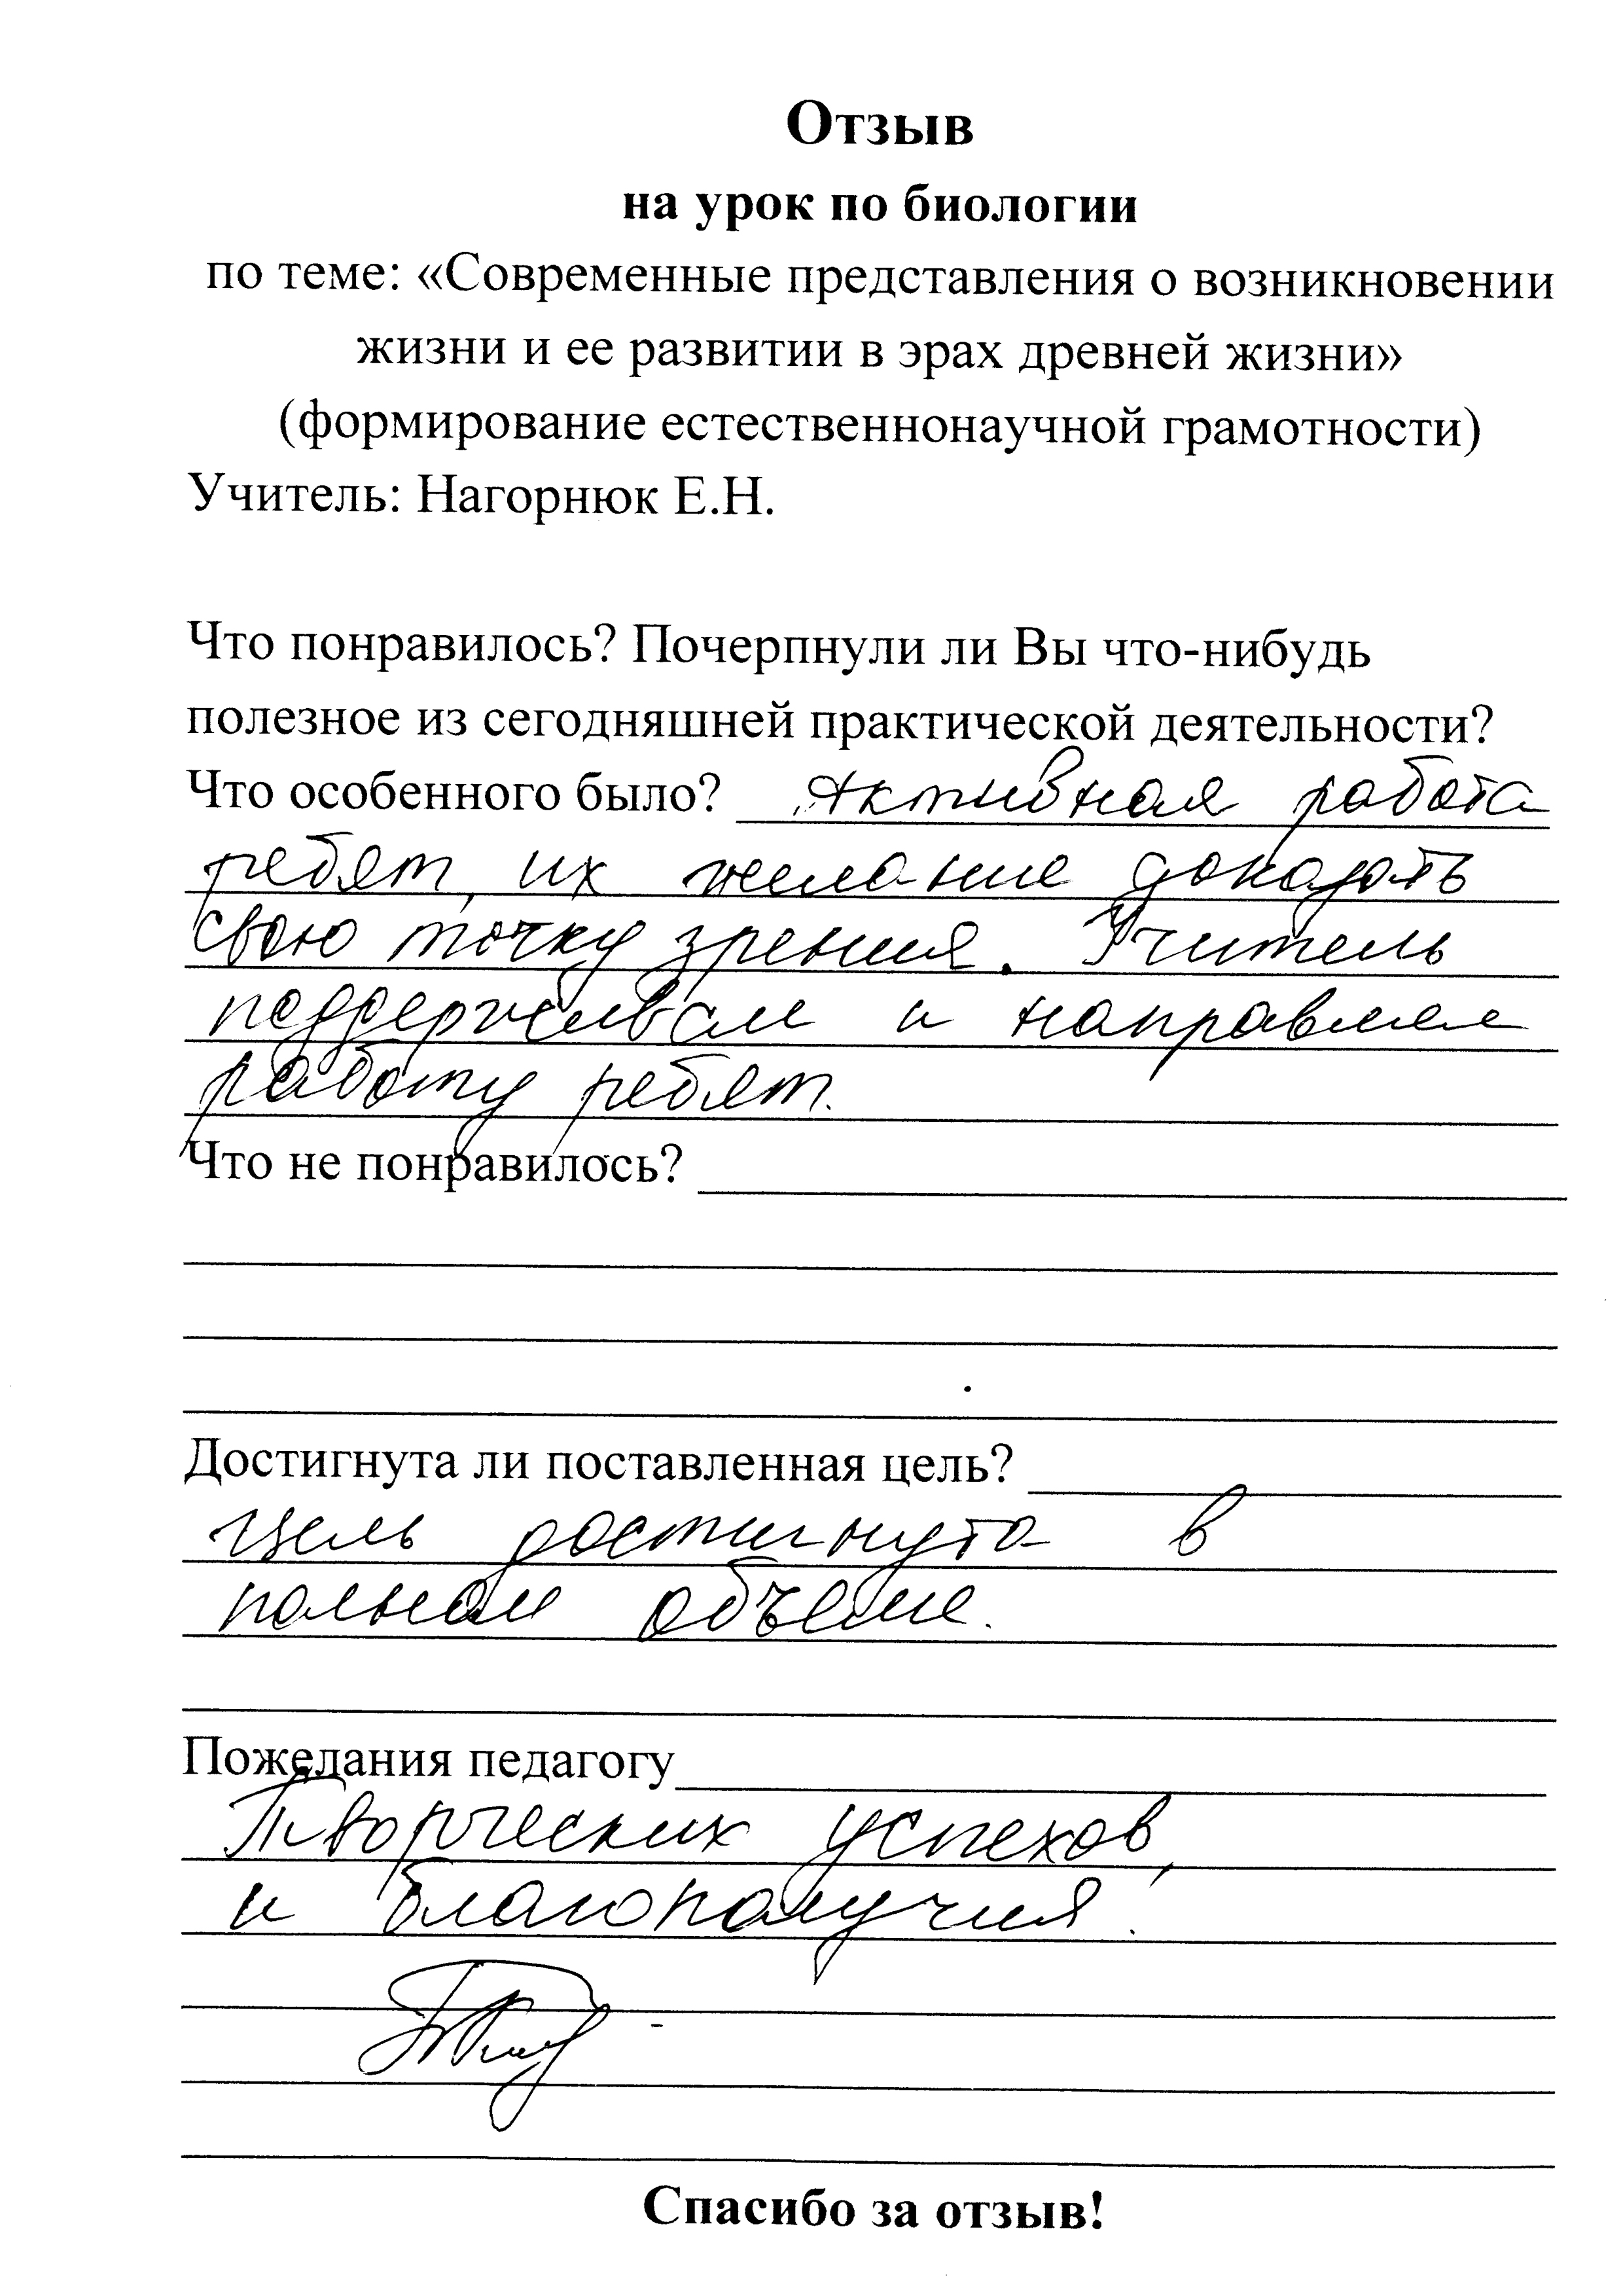 Отзыв
на урок по биологии
по теме: «Современные представления о возникновении
жизни и ее развитии в эрах древней жизни»
(формирование естественнонаучной грамотности)
Учитель: Нагорнюк Е.Н.
Что понравилось? Почерпнули ли Вы что-нибудь
полезное из сегодняшней практической деятельности?
Что особенного было? Активная работа
ребят, их желание доказать
свою точку зрения. Учитель
поддерживал и направлял
работу ребят.
Что не понравилось?
Достигнута ли поставленная цель?
Цель достигнута в
полном объёме.
Пожелания педагогу
Творческих успехов,
и благополучия.
Спасибо за отзыв!